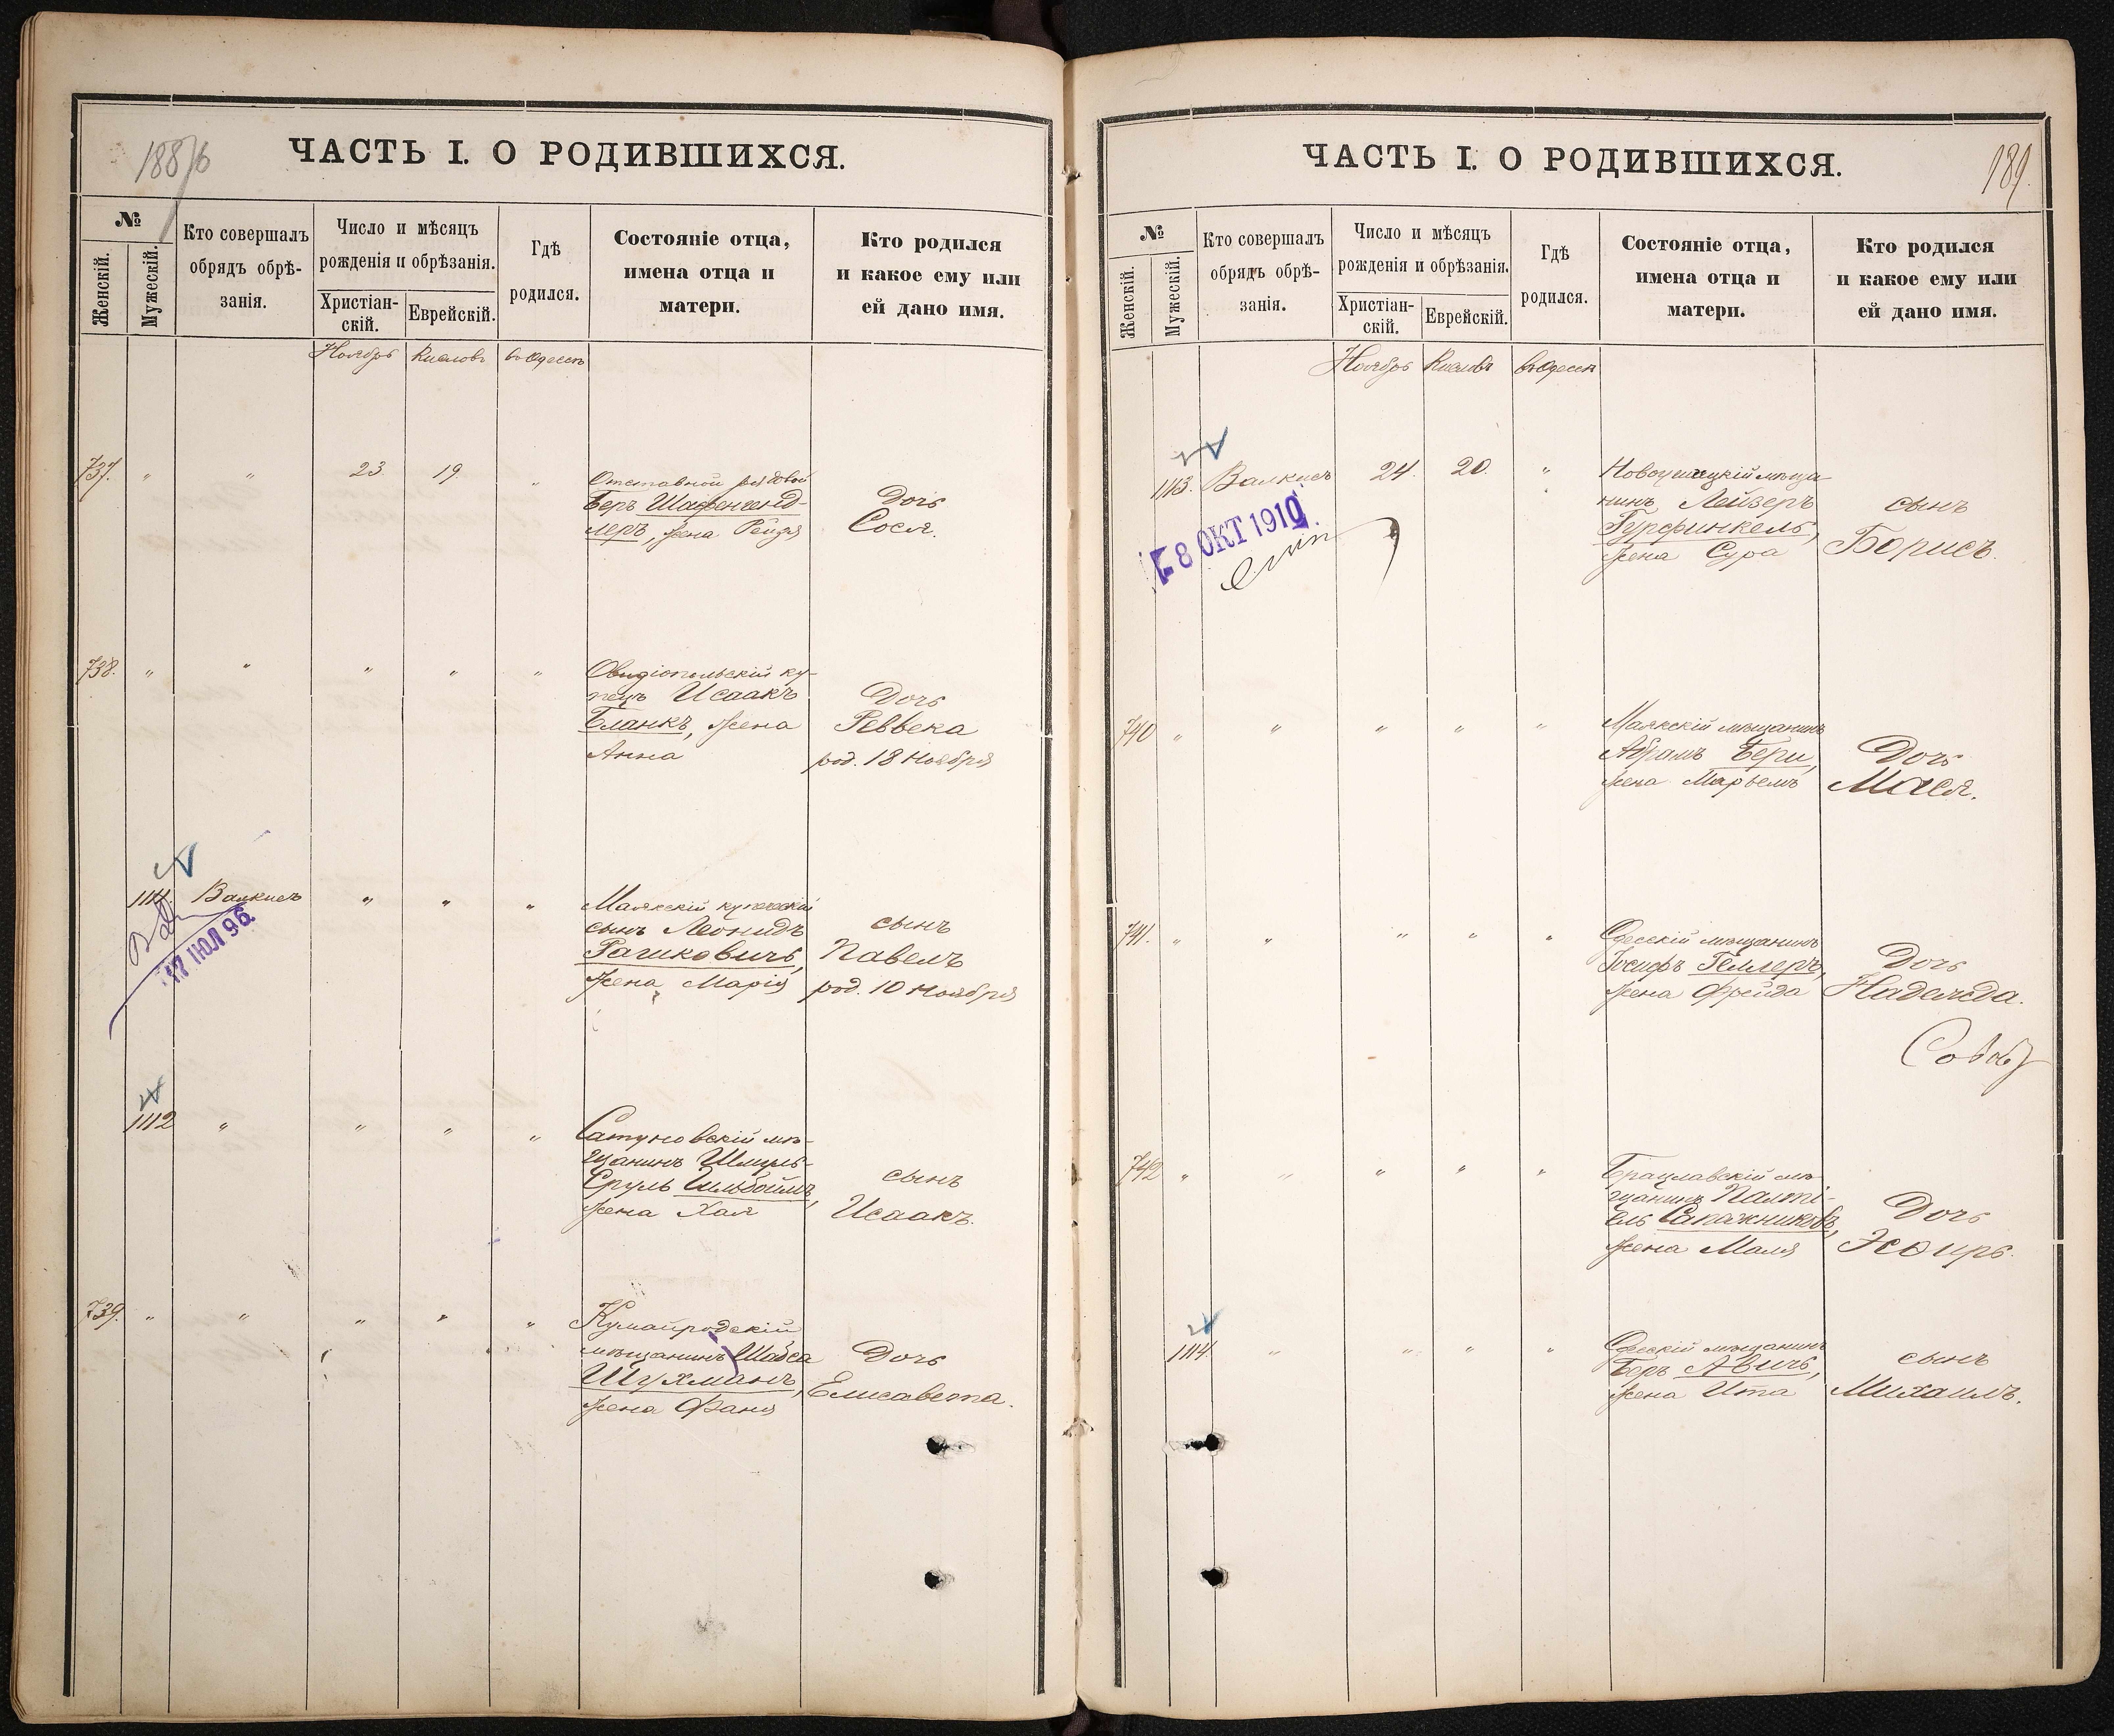 1886
ЧАСТЬ I. О РОДИВШИХСЯ.
№
Женскій.
Мужескій.
Кто совершалъ
обрядъ обрѣ-
занія.
Число и мѣсяцъ
рожденія и обрѣзанія.
Христіан-
скій.
Еврейскій.
Гдѣ
родился.
Состояніе отца,
имена отца и
матери.
Кто родился
и какое ему или
ей дано имя.
Ноябрь Кислевъ въ Одессѣ
737. " " 23 19 "
Отставной рядовой
Беръ Шафенденд-
леръ, жена Рейзя
Дочь
Сося.
738. " " " " "
Овидіопольскій ку-
пецъ Исаакъ
Бланкъ, жена
Анна
Дочь
Реввека
род. 18 Ноября
1111. Валкисъ " " "
17 ІЮЛ 96
Маякскій купеческій
сынъ Леонидъ
Рашковичъ,
жена Марія
сынъ
Павелъ
род. 10 Ноября
1112 " " " "
Сатуновскій мѣ-
щанинъ Шмуль-
Сруль Гильбоимъ,
жена Хая
сынъ
Исаакъ.
739. " " " " "
Кумайродскій
мѣщанинъ Шабса
Шухманъ,
жена Фаня
Дочь
Елисавета.
ЧАСТЬ I. О РОДИВШИХСЯ.
189.
№
Женскій.
Мужескій.
Кто совершалъ
обрядъ обрѣ-
занія.
Число и мѣсяцъ
рожденія и обрѣзанія.
Христіан-
скій.
Еврейскій.
Гдѣ
родился.
Состояніе отца,
имена отца и
матери.
Кто родился
и какое ему или
ей дано имя.
Ноябрь Кислевъ въ Одессѣ
1113. Валкисъ 24. 20. "
8 ОКТ 1910
мѣща-
нинъ Лейзеръ
Гурфинкель,
жена Сура
сынъ
Борисъ.
740 " " " " "
Маякскій мѣщанинъ
Абрамъ Бери,
жена Марьемъ
Дочь
Мася.
741. " " " " "
Одесскій мѣщанинъ
Іосифъ Геллеръ,
жена Фрейда
Дочь
Надежда.
742 " " " " "
Брацлавскій мѣ-
щанинъ Палті-
ель Сапожниковъ,
жена Маля
Дочь
Эсѳирь.
1114. " " " "
Одесскій мѣщанинъ
Беръ Авичъ,
жена Ита
сынъ
Михаилъ.